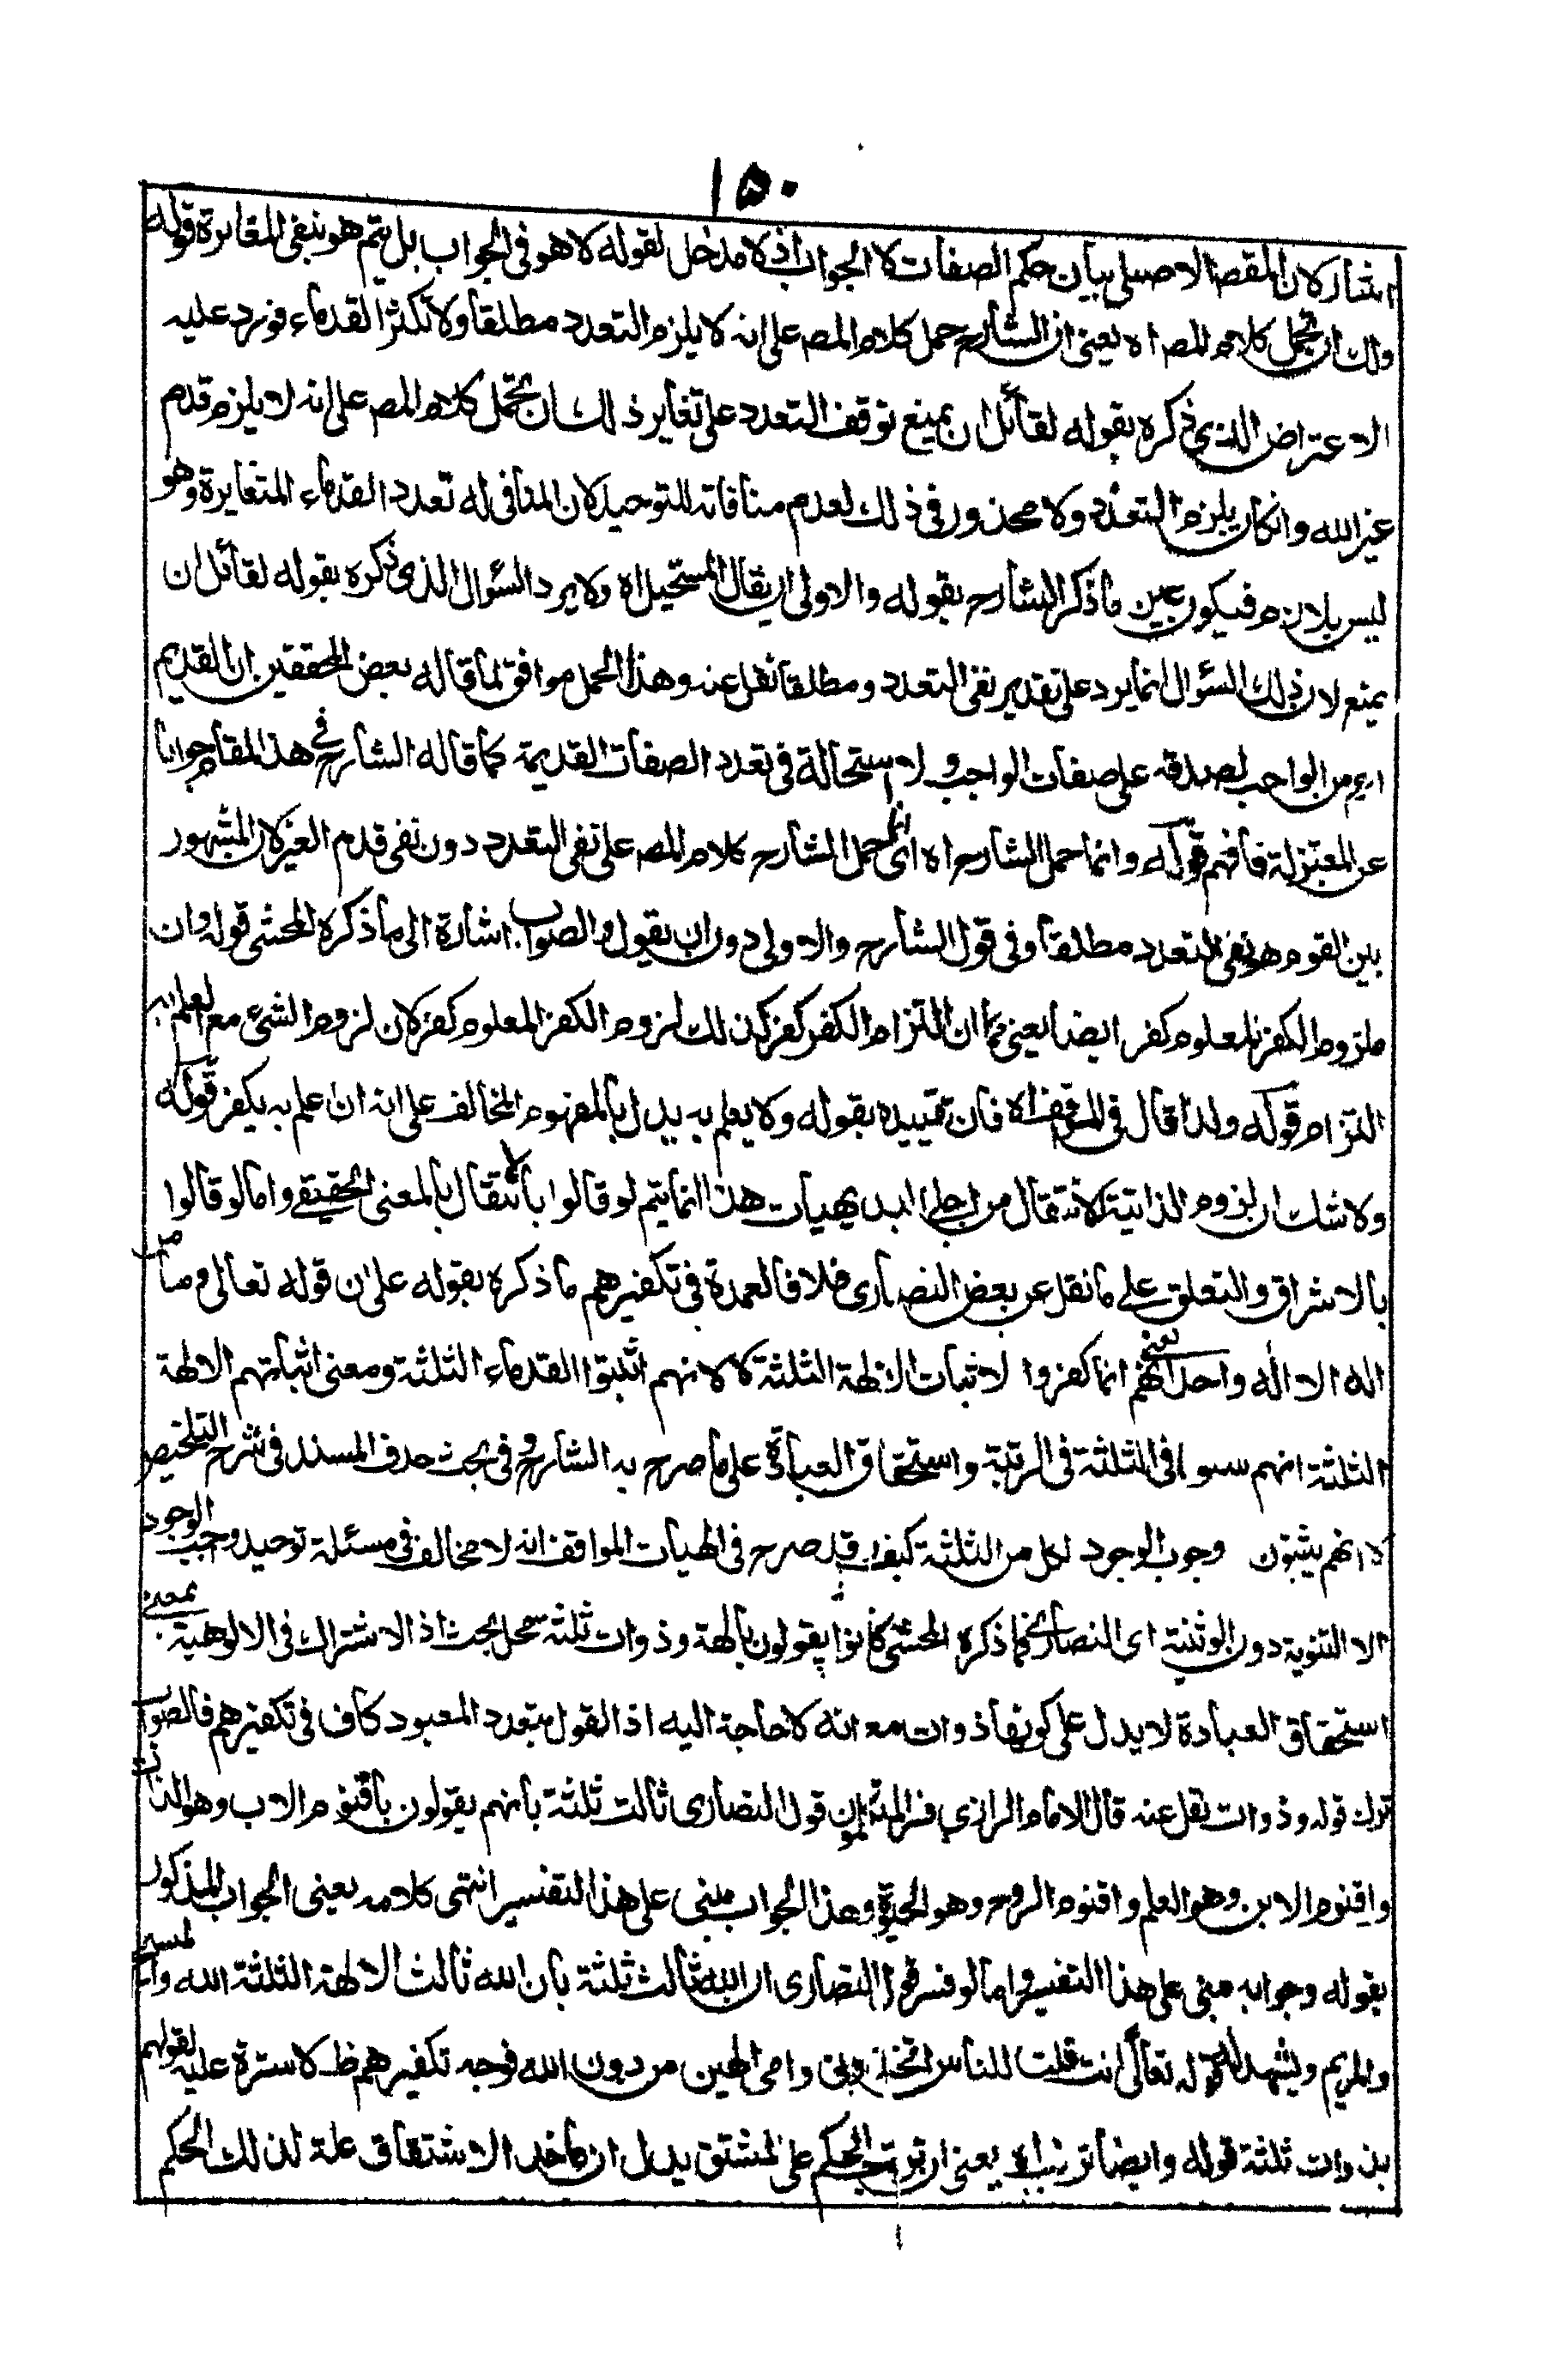 ١٥٠
اشار لان المقصد الاصلي بيان حكم الصفات لا الجواب اذ لا مدخل لقوله لا هو في الجواب بل يتم هو بنفي المغايرة قوله
ولك ان تحمل كلام المص اه يعني ان الشارح حمل كلام المص على انه لا يلزم التعدد مطلقا ولا تكثر القدماء فورد عليه
الاعتراض الذي ذكره بقوله لقائل ان يمنع توقف التعدد على تغاير ذلك ان تحمل كلام المص على انه لا يلزم قدم
غير الله وان كان يلزم التعدد ولا محذور في ذلك لعدم منافاته للتوحيد لان المنافي له تعدد القدماء المتغايرة وهو
ليس بلازم فيكون عين ما ذكر الشارح بقوله والاولى ان يقال المستحيل اه ولا يرد السؤال الذي ذكره بقوله لقائل ان
يمنع لان ذلك السؤال انما يرد على تقدير نفي التعدد ومطلقا نقل عنه وهذا الحمل موافق لما قاله بعض المحققين ان القديم
اعم من الواجب لصدقه على صفات الواجب ولا استحالة في تعدد الصفات القديمة كما قاله الشارح في هذا المقام جوابا
عن المعتزلة فافهم قوله وانما حمل الشارح اه اي انما حمل الشارح كلام المص على نفي التعدد دون نفي قدم الغير لان المشهور
بين القوم هو نفي التعدد مطلقا وفي قول الشارح والاولى دون ان يقول والصواب اشارة الى ما ذكره المحشي قوله وان
ملزوم الكفر المعلوم كفر ايضا يعني كما ان التزام الكفر كفر كذلك لزوم الكفر المعلوم كفر لان لزوم الشيء مع العلم به
التزام قوله ولذا قال في المواقف اه فان تقييده بقوله ولا يعلم به يدل بالمفهوم المخالف على انه ان علم به يكفر قوله
ولا شك ان لزوم الذاتية للانتقال من اجلى البديهيات هذا انما يتم لو قالوا بالانتقال بالمعنى الحقيقي واما لو قالوا
بالاشراق والتعلق على ما نقل عن بعض النصارى فلا فالعمدة في تكفيرهم ما ذكره بقوله على ان قوله تعالى وما من
اله الا اله واحد يعني انهم انما كفروا لاثبات الالهة الثلثة لا لانهم اثبتوا القدماء الثلثة ومعنى اثباتهم الالهة
الثلثة انهم سووا في الثلثة في الرتبة واستحقاق العبادة على ما صرح به الشارح في بحث حذف المسند في شرح التلخيص
لا انهم يثبتون وجوب الوجود لكل من الثلثة كيف وقد صرح في الهيات المواقف انه لا مخالف في مسئلة توحيد واجب الوجود
الا الثنوية دون الوثنية اي النصارى كما ذكره المحشي كانوا يقولون بالهة وذوات ثلثة محل بحث اذ الاشتراك في الالوهية بمعنى
استحقاق العبادة لا يدل على كونها ذوات مع انه لا حاجة اليه اذ القول بتعدد المعبود كاف في تكفيرهم فالصواب
ترك قوله وذوات نقل عنه قال الامام الرازي فسر المتكلمون قول النصارى ثالث ثلثة بانهم يقولون باقنوم الاب وهو الذات
واقنوم الابن وهو العلم واقنوم الروح وهو الحيوة وهذا الجواب مبني على هذا التفسير انتهى كلامه يعني الجواب المذكور
بقوله وجوابه مبني على هذا التفسير واما لو فسر قول النصارى ان الله ثالث ثلثة بان الله ثالث الالهة الثلثة الله والمسيح
والمريم ويشهد له قوله تعالى ءانت قلت للناس اتخذوني وامي الهين من دون الله فوجه تكفيرهم ظ لا سترة عليه لقولهم
بذوات ثلثة قوله وايضا ترتب اه يعني ان ترتب الحكم على المشتق يدل ان ماخذ الاشتقاق علة لذلك الحكم